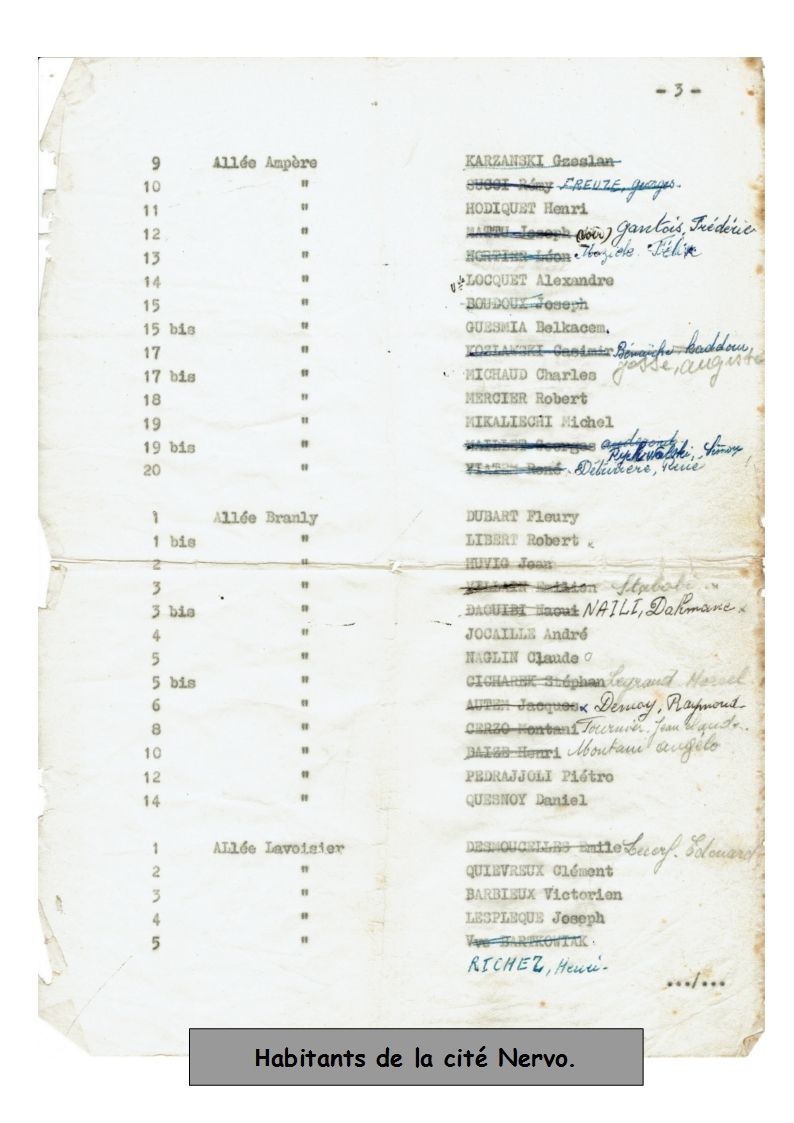 - 3 -
9 Allée Ampère KARZANSKI Czeslan
10 " SUCCI Rémy FREUZE, georges.
11 " HODIQUET Henri
12 " MATTU Joseph (voir) Gantois, Frédéric
13 " MORTIER Léon Félix
14 " LOCQUET Alexandre
15 " BOUDOUX Joseph
15 bis " GUESMIA Belkacem.
17 " KOZLAWSKI Casimir Baddour,
Josse, auguste
17 bis " MICHAUD Charles
18 " MERCIER Robert
19 " MIKALIECHI Michel
19 bis " MAILLET Georges
Rychowalski, Simon,
20 " René Débuviere, rené
1 Allée Branly DUBART Fleury
1 bis " LIBERT Robert
2 " HUVIG Jean
3 " VILLAIN Emilien
3 bis " DAOUIBI Naoui NAILI, Dahmane x
4 " JOCAILLE André
5 " NAGLIN Claude
5 bis " CICHAREK Stéphan Legrand Marcel
6 " AUTEM Jacques x Demay, Raymond-
8 " CERZO Montani Tournier. Jean claude.
10 " DAIZE Henri Montani angélo
12 " PEDRAJJOLI Piétro
14 " QUESNOY Daniel
1 ALlée Lavoisier DESMOUCELLES Emile Edouard
2 " QUIEVREUX Clément
3 " BARBIEUX Victorien
4 " LESPLEQUE Joseph
5 " Vve BARTKOWIAK
RICHEZ, Henri-
.../...
Habitants de la cité Nervo.